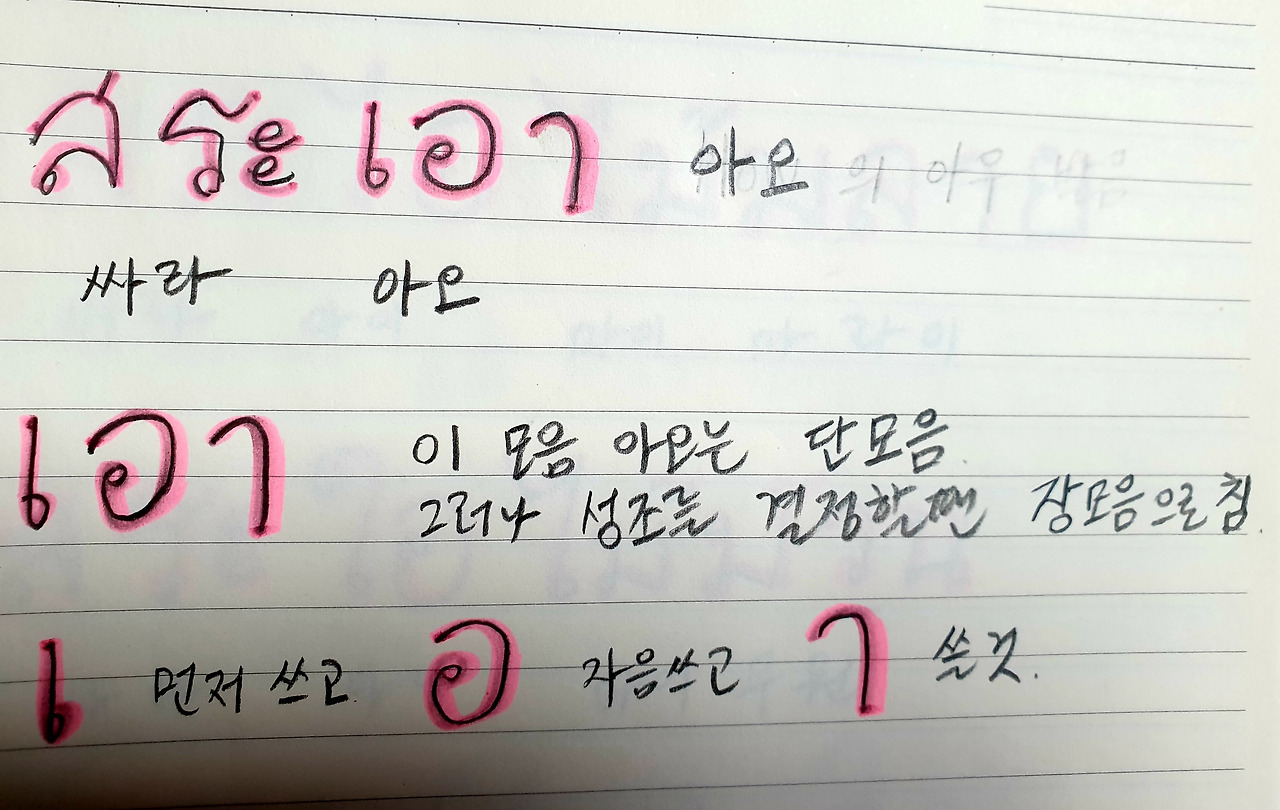 สระ เอา 아오 의 아우 발음
싸라 아오
เอา 이 모음 아오는 단모음.
그러나 성조를 결정할땐 장모음으로 침.
เ 먼저 쓰고. อ 자음쓰고 า 쓸것.